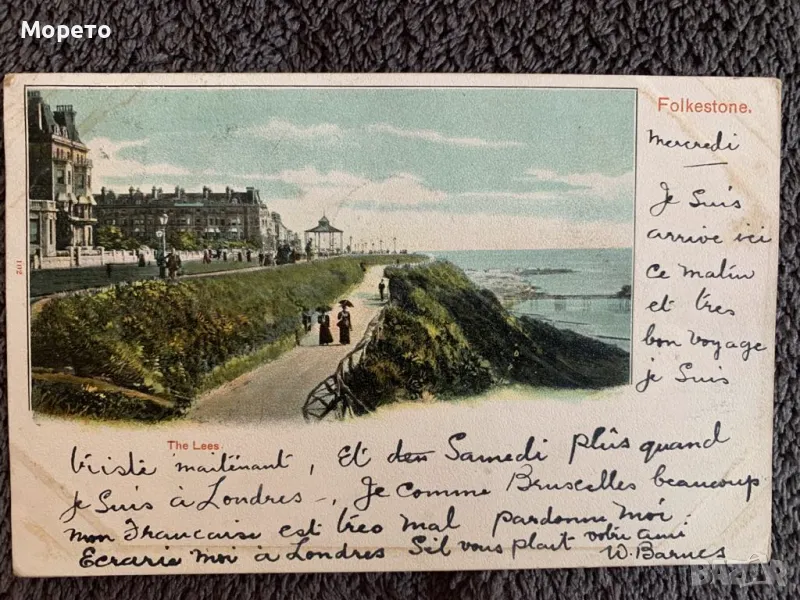 Морето
Folkestone.
Mercredi
Je Suis
arrive ici
ce matin
et très
bon voyage
je Suis
102
The Lees.
triste maitenant, Et den Samedi plûs quand
je Suis à Londres -, Je comme Bruscelles beaucoup
mon Francaise est trèo mal pardonne moi
Ecrarie moi à Londres Sil vous plait votre ami
W. Barnes
BAZAR